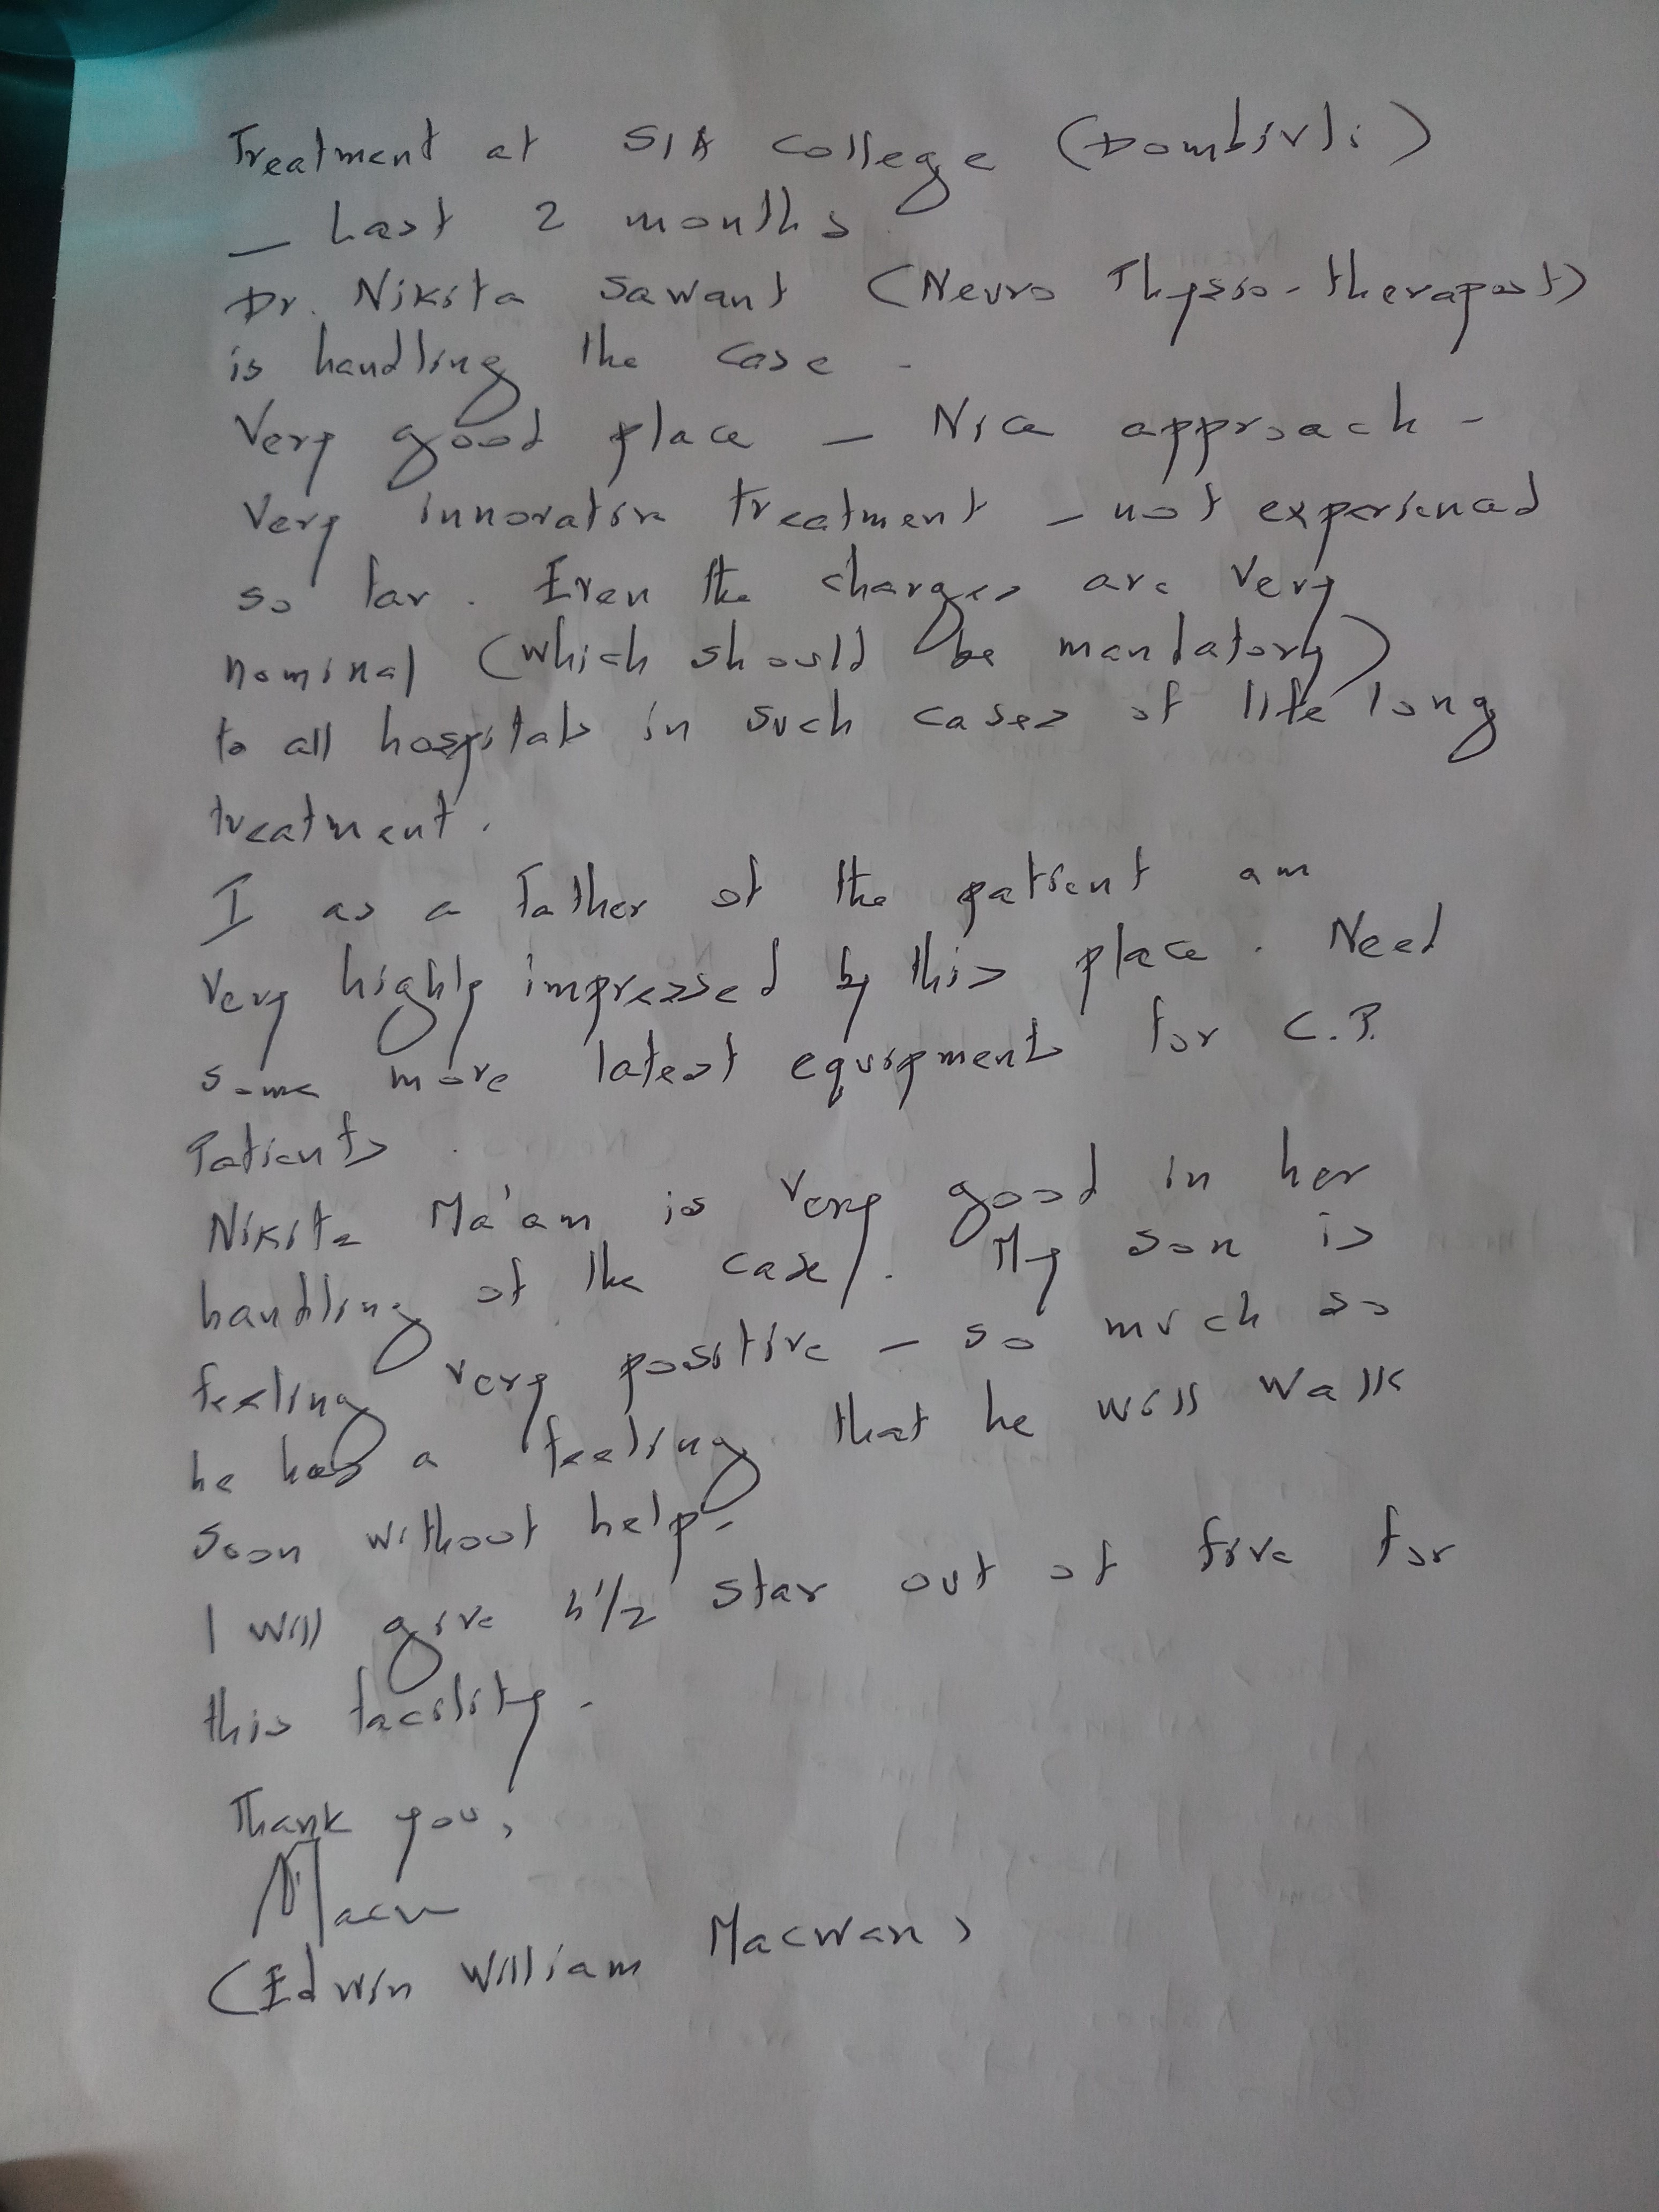 Treatment at SIA College (Dombivli)
_ Last 2 months
Dr. Nikita Sawant (Neuro Physio-therapist)
is handling the case.
Very good place - Nice approach -
Very innovative treatment - not experienced
so far. Even the charges are very
nominal (which should be mandatory)
to all hospitals in such cases of life long
treatment.
I as a Father of the patient am
very highly impressed by this place. Need
some more latest equipments for C.P.
Patients.
Nikita Ma'am is very good in her
handling of the case. My son is
feeling very positive - so much so
he has a feeling that he will walk
soon without help.
I will give 4 1/2 star out of five for
this facility.
Thank you,
(Edwin William Macwan)